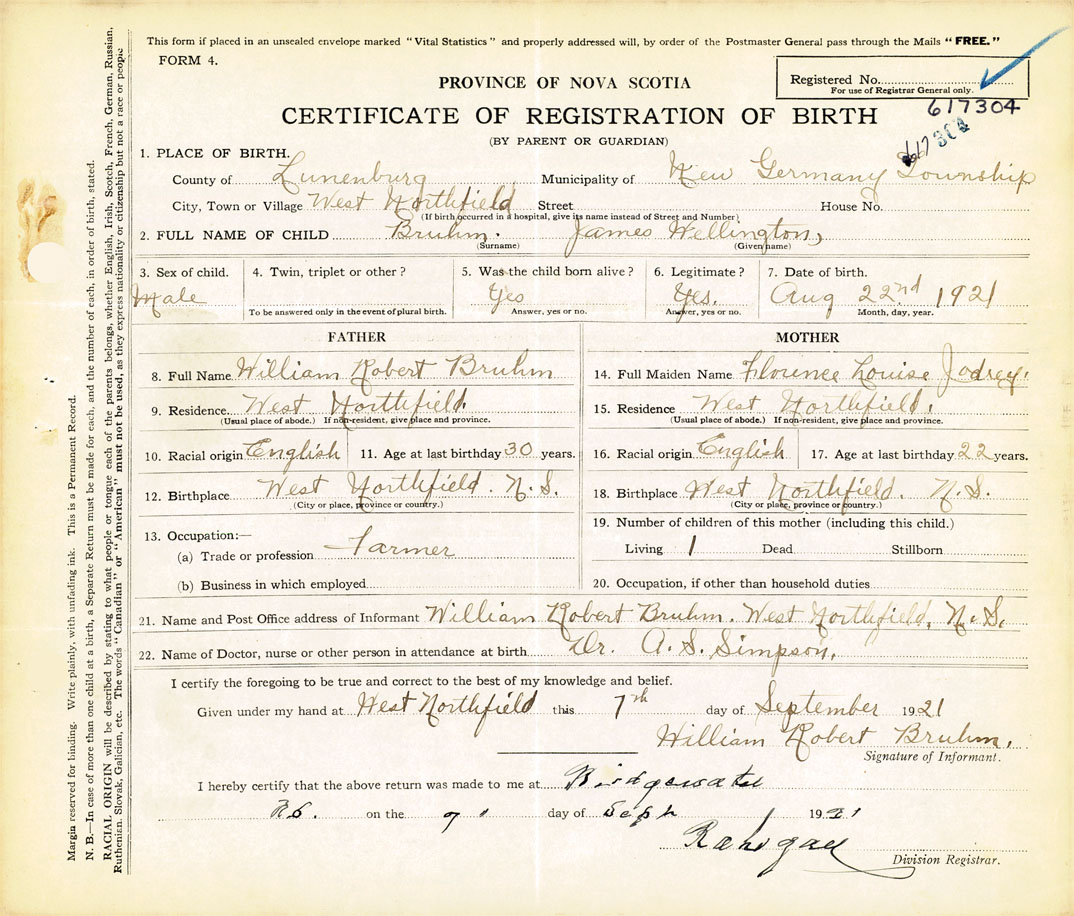 This form if placed in an unsealed envelope marked "Vital Statistics" and properly addressed will, by order of the Postmaster General pass through the Mails "FREE."
FORM 4.
PROVINCE OF NOVA SCOTIA
Registered No.
For use of Registrar General only.
617304
CERTIFICATE OF REGISTRATION OF BIRTH
(BY PARENT OR GUARDIAN)
1. PLACE OF BIRTH.
County of Lunenburg Municipality of New Germany Township
City, Town or Village West Northfield Street House No.
(If birth occurred in a hospital, give its name instead of Street and Number)
2. FULL NAME OF CHILD Bruhm. James Wellington,
(Surname) (Given name)
3. Sex of child. 4. Twin, triplet or other? 5. Was the child born alive? 6. Legitimate? 7. Date of birth.
Male Yes Yes. Aug 22nd 1921
To be answered only in the event of plural birth. Answer, yes or no. Answer, yes or no. Month, day, year.
FATHER MOTHER
8. Full Name William Robert Bruhm 14. Full Maiden Name Florence Louise Jodrey.
9. Residence West Northfield. 15. Residence West Northfield.
(Usual place of abode.) If non-resident, give place and province. (Usual place of abode.) If non-resident, give place and province.
10. Racial origin English 11. Age at last birthday 30 years. 16. Racial origin English 17. Age at last birthday 22 years.
12. Birthplace West Northfield. N.S. 18. Birthplace West Northfield. N.S.
(City or place, province or country.) (City or place, province or country.)
13. Occupation:— 19. Number of children of this mother (including this child.)
(a) Trade or profession Farmer Living 1 Dead Stillborn
(b) Business in which employed 20. Occupation, if other than household duties
21. Name and Post Office address of Informant William Robert Bruhm. West Northfield, N.S.
22. Name of Doctor, nurse or other person in attendance at birth Dr. A. S. Simpson.
I certify the foregoing to be true and correct to the best of my knowledge and belief.
Given under my hand at West Northfield this 7th day of September 1921
William Robert Bruhm.
Signature of Informant.
I hereby certify that the above return was made to me at Bridgewater
N.S. on the 9 day of Sept 1921
Division Registrar.
Margin reserved for binding. Write plainly, with unfading ink. This is a Permanent Record.
N. B.—In case of more than one child at a birth, a Separate Return must be made for each, and the number of each, in order of birth, stated.
RACIAL ORIGIN will be described by stating to what people or tongue each of the parents belongs, whether English, Irish, Scotch, French, German, Russian,
Ruthenian, Slovak, Galician, etc. The words "Canadian" or "American" must not be used, as they express nationality or citizenship but not a race or people